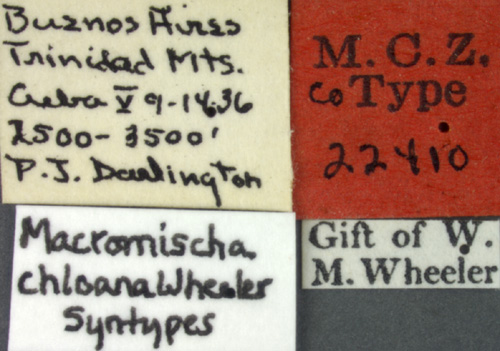 Buenos Aires
Trinidad Mts.
Cuba V 9-14.36
2500-3500'
P.J. Darlington
M.C.Z.
Co Type
22410
Macromischa
chloana Wheeler
Syntypes
Gift of W.
M. Wheeler